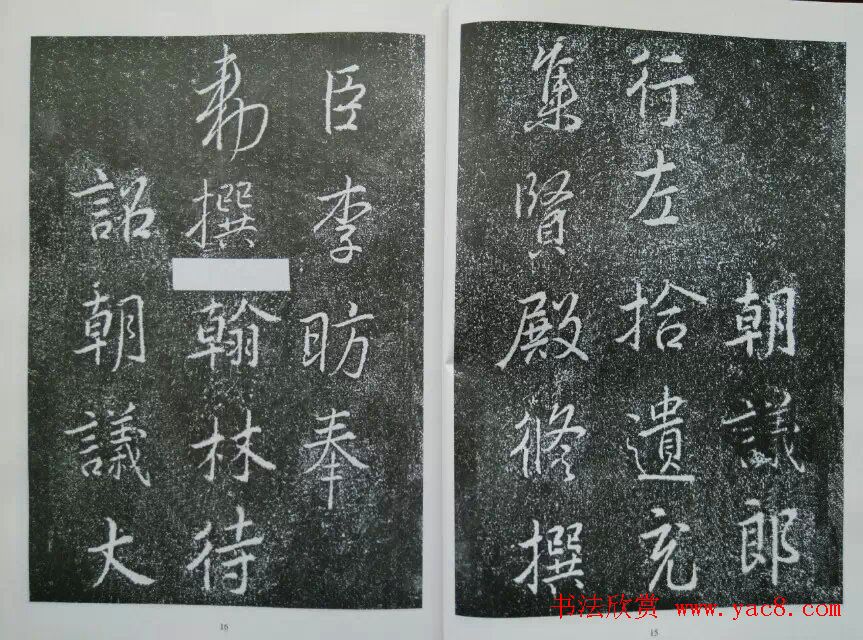 朝議郎
行左拾遺充
集賢殿修撰
臣李昉奉
勅撰翰林待
詔朝議大
15
16
书法欣赏 www.yac8.com